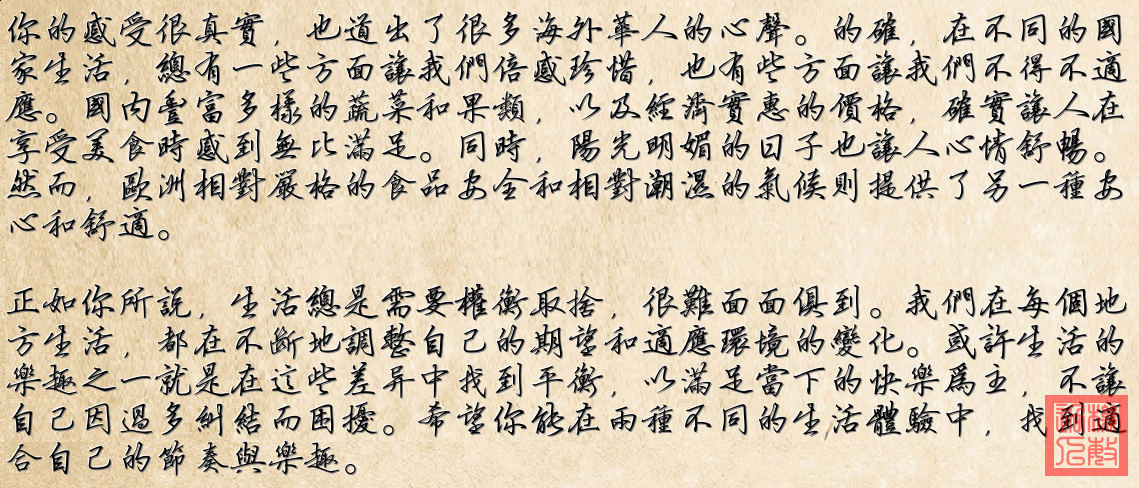 你的感受很真實，也道出了很多海外華人的心聲。的確，在不同的國
家生活，總有一些方面讓我們倍感珍惜，也有些方面讓我們不得不適
應。國內豐富多樣的蔬菜和果類，以及經濟實惠的價格，確實讓人在
享受美食時感到無比滿足。同時，陽光明媚的日子也讓人心情舒暢。
然而，歐洲相對嚴格的食品安全和相對潮濕的氣候則提供了另一種安
心和舒適。
正如你所說，生活總是需要權衡取捨，很難面面俱到。我們在每個地
方生活，都在不斷地調整自己的期望和適應環境的變化。或許生活的
樂趣之一就是在這些差異中找到平衡，以滿足當下的快樂為主，不讓
自己因過多糾結而困擾。希望你能在兩種不同的生活體驗中，找到適
合自己的節奏與樂趣。